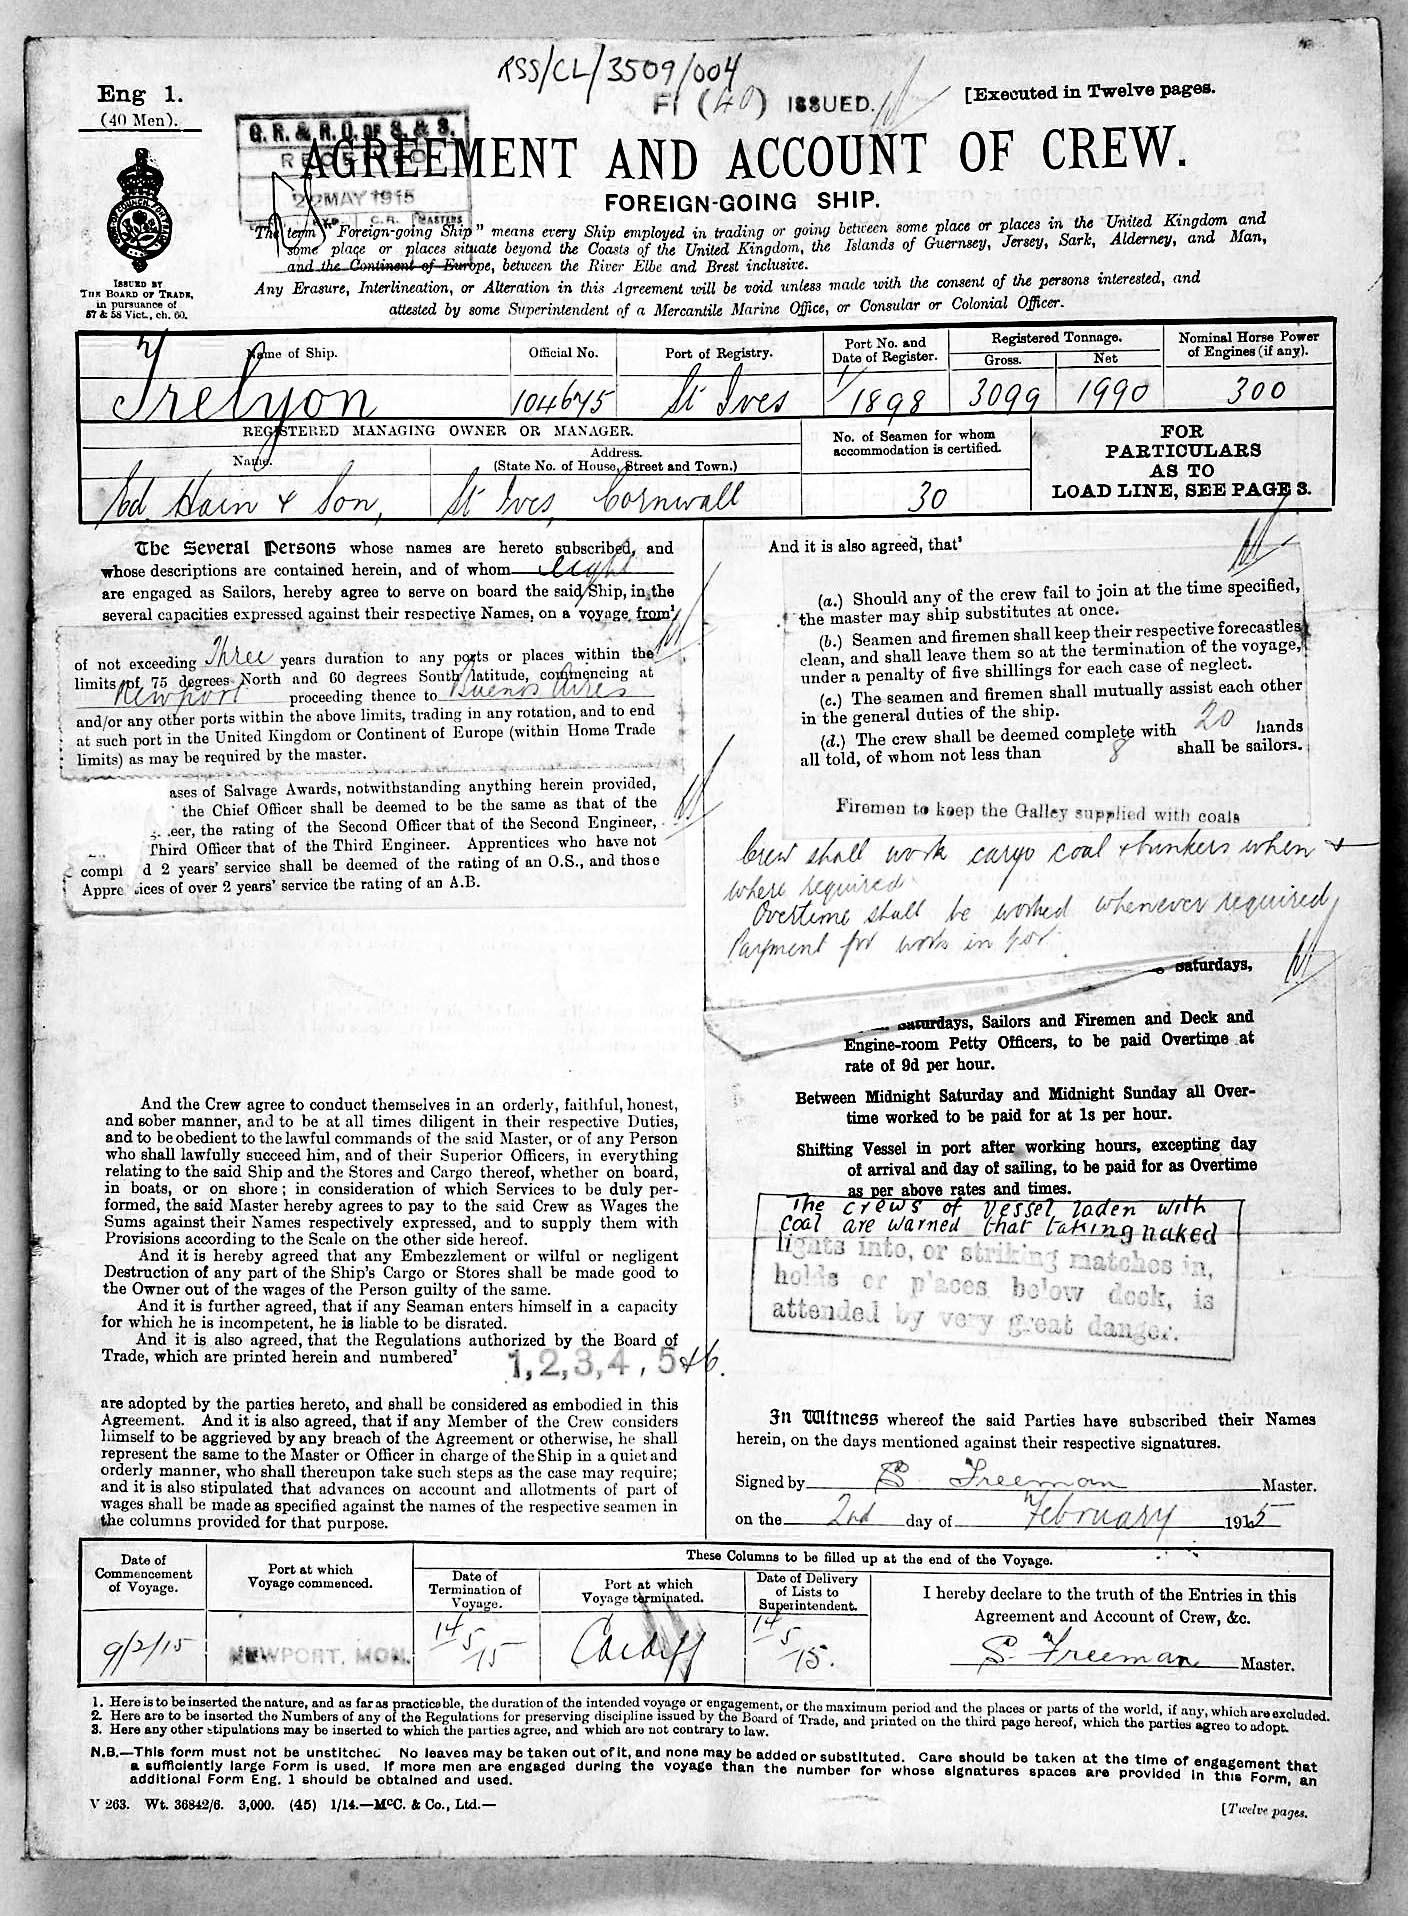 RSS/CL/3509/004
Eng 1.
(40 Men).
FI (40) ISSUED.
[Executed in Twelve pages.
G. R. & R. O. OF S. & S.
RECEIVED
22 MAY 1915
C.R. MASTERS
AGREEMENT AND ACCOUNT OF CREW.
FOREIGN-GOING SHIP.
The term "Foreign-going Ship" means every Ship employed in trading or going between some place or places in the United Kingdom and
some place or places situate beyond the Coasts of the United Kingdom, the Islands of Guernsey, Jersey, Sark, Alderney, and Man,
and the Continent of Europe, between the River Elbe and Brest inclusive.
Any Erasure, Interlineation, or Alteration in this Agreement will be void unless made with the consent of the persons interested, and
attested by some Superintendent of a Mercantile Marine Office, or Consular or Colonial Officer.
ISSUED BY
THE BOARD OF TRADE,
in pursuance of
57 & 58 Vict., ch. 60.
Name of Ship.
Official No.
Port of Registry.
Port No. and
Date of Register.
Registered Tonnage.
Gross.
Net
Nominal Horse Power
of Engines (if any).
Trelyon
104675
St Ives
1/1898
3099
1990
300
REGISTERED MANAGING OWNER OR MANAGER.
Name.
Address.
(State No. of House, Street and Town.)
No. of Seamen for whom
accommodation is certified.
FOR
PARTICULARS
AS TO
LOAD LINE, SEE PAGE 3.
Ed. Hain & Son,
St Ives, Cornwall
30
The Several Persons whose names are hereto subscribed, and
whose descriptions are contained herein, and of whom eight
are engaged as Sailors, hereby agree to serve on board the said Ship, in the
several capacities expressed against their respective Names, on a voyage from¹
of not exceeding Three years duration to any ports or places within the
limits of 75 degrees North and 60 degrees South latitude, commencing at
Newport proceeding thence to Buenos Aires
and/or any other ports within the above limits, trading in any rotation, and to end
at such port in the United Kingdom or Continent of Europe (within Home Trade
limits) as may be required by the master.
ases of Salvage Awards, notwithstanding anything herein provided,
the Chief Officer shall be deemed to be the same as that of the
eer, the rating of the Second Officer that of the Second Engineer,
Third Officer that of the Third Engineer. Apprentices who have not
compl d 2 years' service shall be deemed of the rating of an O.S., and those
Appre ices of over 2 years' service the rating of an A.B.
And the Crew agree to conduct themselves in an orderly, faithful, honest,
and sober manner, and to be at all times diligent in their respective Duties,
and to be obedient to the lawful commands of the said Master, or of any Person
who shall lawfully succeed him, and of their Superior Officers, in everything
relating to the said Ship and the Stores and Cargo thereof, whether on board,
in boats, or on shore; in consideration of which Services to be duly per-
formed, the said Master hereby agrees to pay to the said Crew as Wages the
Sums against their Names respectively expressed, and to supply them with
Provisions according to the Scale on the other side hereof.
And it is hereby agreed that any Embezzlement or wilful or negligent
Destruction of any part of the Ship's Cargo or Stores shall be made good to
the Owner out of the wages of the Person guilty of the same.
And it is further agreed, that if any Seaman enters himself in a capacity
for which he is incompetent, he is liable to be disrated.
And it is also agreed, that the Regulations authorized by the Board of
Trade, which are printed herein and numbered² 1, 2, 3, 4, 5 & 6.
are adopted by the parties hereto, and shall be considered as embodied in this
Agreement. And it is also agreed, that if any Member of the Crew considers
himself to be aggrieved by any breach of the Agreement or otherwise, he shall
represent the same to the Master or Officer in charge of the Ship in a quiet and
orderly manner, who shall thereupon take such steps as the case may require;
and it is also stipulated that advances on account and allotments of part of
wages shall be made as specified against the names of the respective seamen in
the columns provided for that purpose.
And it is also agreed, that³
(a.) Should any of the crew fail to join at the time specified,
the master may ship substitutes at once.
(b.) Seamen and firemen shall keep their respective forecastles
clean, and shall leave them so at the termination of the voyage,
under a penalty of five shillings for each case of neglect.
(c.) The seamen and firemen shall mutually assist each other
in the general duties of the ship.
(d.) The crew shall be deemed complete with 20 hands
all told, of whom not less than 8 shall be sailors.
Firemen to keep the Galley supplied with coals
Crew shall work cargo coal & bunkers when &
where required
Overtime shall be worked whenever required
Payment for work in port
Saturdays,
Saturdays, Sailors and Firemen and Deck and
Engine-room Petty Officers, to be paid Overtime at
rate of 9d per hour.
Between Midnight Saturday and Midnight Sunday all Over-
time worked to be paid for at 1s per hour.
Shifting Vessel in port after working hours, excepting day
of arrival and day of sailing, to be paid for as Overtime
as per above rates and times.
The crews of Vessel laden with
coal are warned that taking naked
lights into, or striking matches in,
holds or places below deck, is
attended by very great danger.
In Witness whereof the said Parties have subscribed their Names
herein, on the days mentioned against their respective signatures.
Signed by S Freeman Master.
on the 2nd day of February 1915
Date of
Commencement
of Voyage.
Port at which
Voyage commenced.
These Columns to be filled up at the end of the Voyage.
Date of
Termination of
Voyage.
Port at which
Voyage terminated.
Date of Delivery
of Lists to
Superintendent.
I hereby declare to the truth of the Entries in this
Agreement and Account of Crew, &c.
9/2/15
NEWPORT, MON.
14/5/15
Cardiff
14/5/15.
S. Freeman Master.
1. Here is to be inserted the nature, and as far as practicable, the duration of the intended voyage or engagement, or the maximum period and the places or parts of the world, if any, which are excluded.
2. Here are to be inserted the Numbers of any of the Regulations for preserving discipline issued by the Board of Trade, and printed on the third page hereof, which the parties agree to adopt.
3. Here any other stipulations may be inserted to which the parties agree, and which are not contrary to law.
N.B.—This form must not be unstitched. No leaves may be taken out of it, and none may be added or substituted. Care should be taken at the time of engagement that
a sufficiently large Form is used. If more men are engaged during the voyage than the number for whose signatures spaces are provided in this Form, an
additional Form Eng. 1 should be obtained and used.
V 263. Wt. 36842/6. 3,000. (45) 1/14.—McC. & Co., Ltd.—
[Twelve pages.